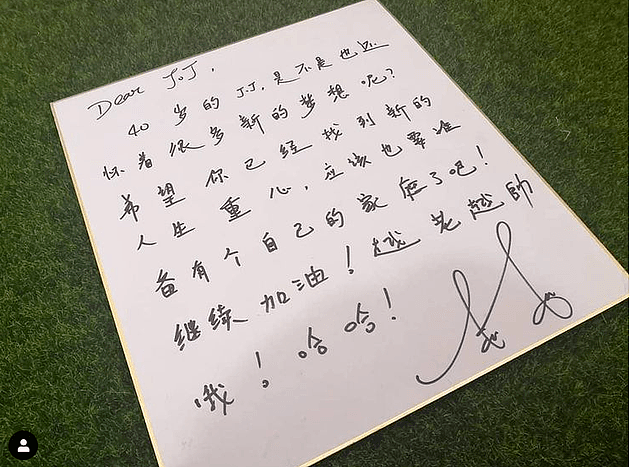 Dear J.J,
40岁的J.J,是不是也还
怀着很多新的梦想呢?
希望你已经找到新的
人生重心,应该也要准
备有个自己的家庭了吧!
继续加油!越老越帥
哦!哈哈!